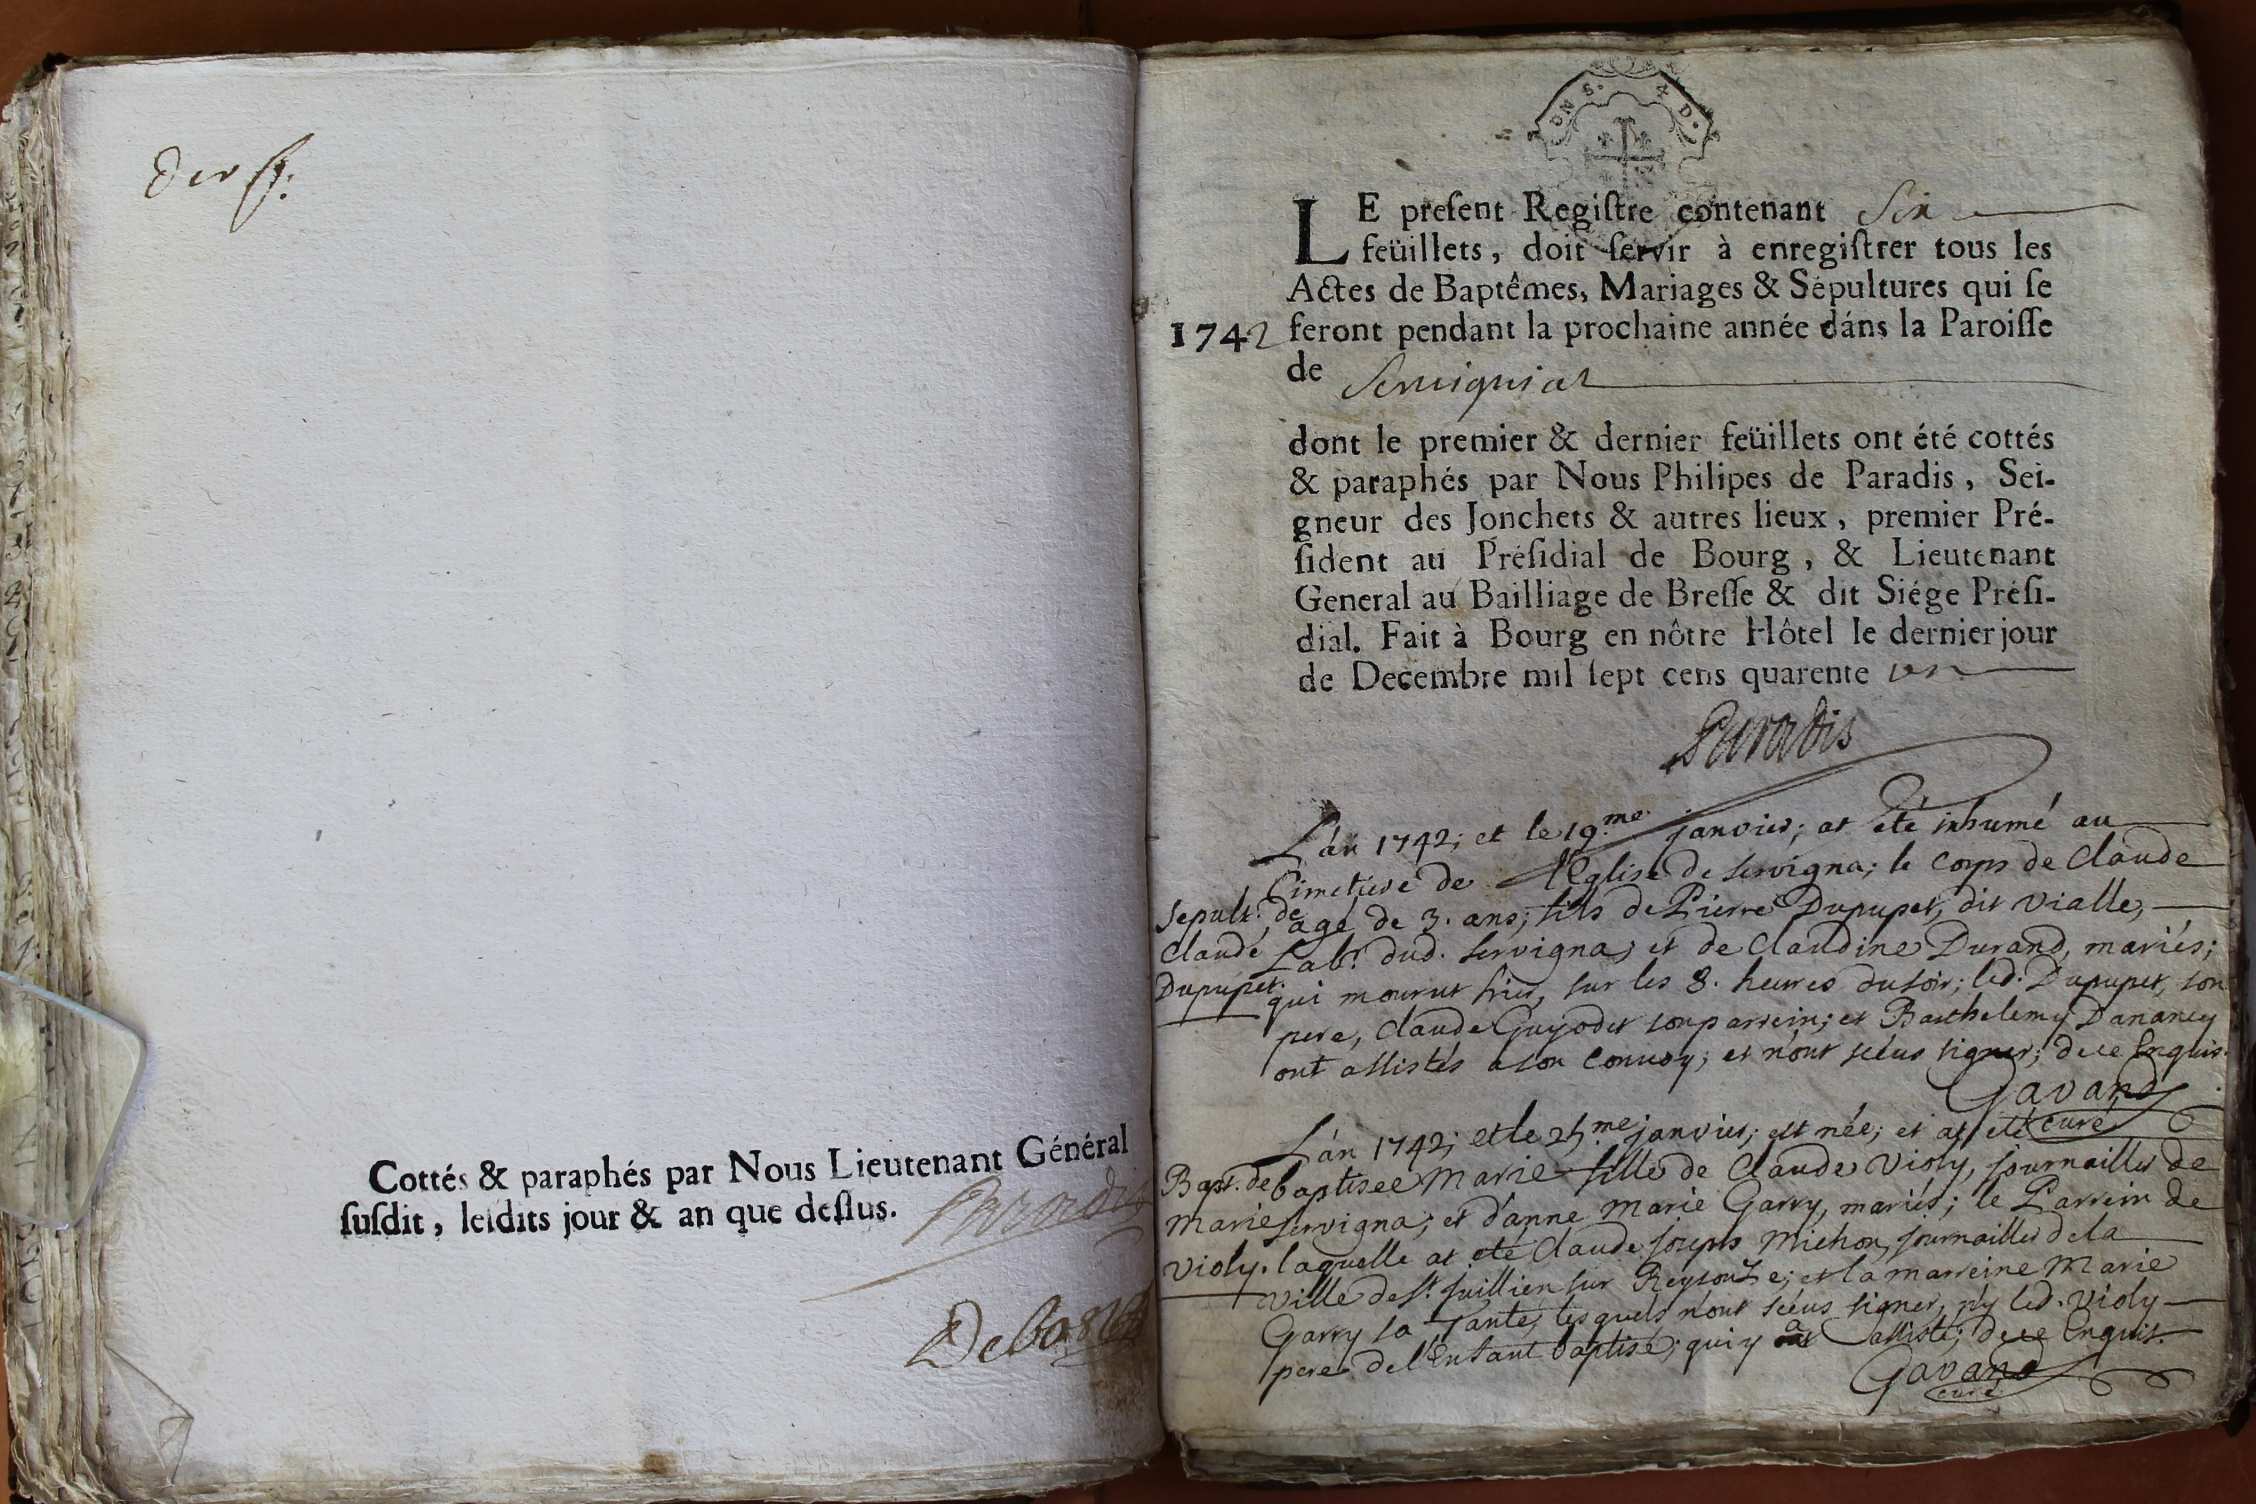 der f.
Cottés & paraphés par Nous Lieutenant Général
susdit, lesdits jour & an que dessus.
Paradis
GEN S. & D.
LE present Registre contenant Six
feüillets, doit servir à enregistrer tous les
Actes de Baptêmes, Mariages & Sépultures qui se
1742 feront pendant la prochaine année dáns la Paroisse
de Seruigniat
dont le premier & dernier feüillets ont été cottés
& paraphés par Nous Philipes de Paradis, Sei-
gneur des Jonchets & autres lieux, premier Pré-
sident au Présidial de Bourg, & Lieutenant
General au Bailliage de Bresse & dit Siége Prési-
dial. Fait à Bourg en nôtre Hôtel le dernier jour
de Decembre mil sept cens quarente un
Paradis
L'án 1742; et le 19.me janvier; at été inhumé au
Cimetiere de l'Eglise de servigna; le corps de Claude
Sepult. de
Claude
Dupupet.
agé de 3. ans; fils de Pierre Dupupet, dit Vialle,
Lab.r dud. servigna; et de Claudine Durand, mariés;
qui mourut hier, sur les 8. heures du soir; led. Dupupet, son
pere, Claude Guyodet son parrein; et Barthelemy Danancy
ont assistés a son convoy; et n'ont scéus signer; de ce Enquis.
Gavand
curé
L'án 1742; et le 25.me janvier; est née; et at eté
Bapt. de
Marie
Violy.
baptisee Marie fille de Claude Violy, journaillier de
servigna; et d'anne Marie Garry, mariés; le Parrein de
laquelle at eté Claude joseph Michon, journaillier de la
ville de S.t Juillien sur Reysouse; et la marreine Marie
Garry sa Tante, lesquels n'ont scéus signer, n'y led. Violy
pere de l'Enfant baptisé; qui y a assisté; de ce Enquis.
Gavand
curé